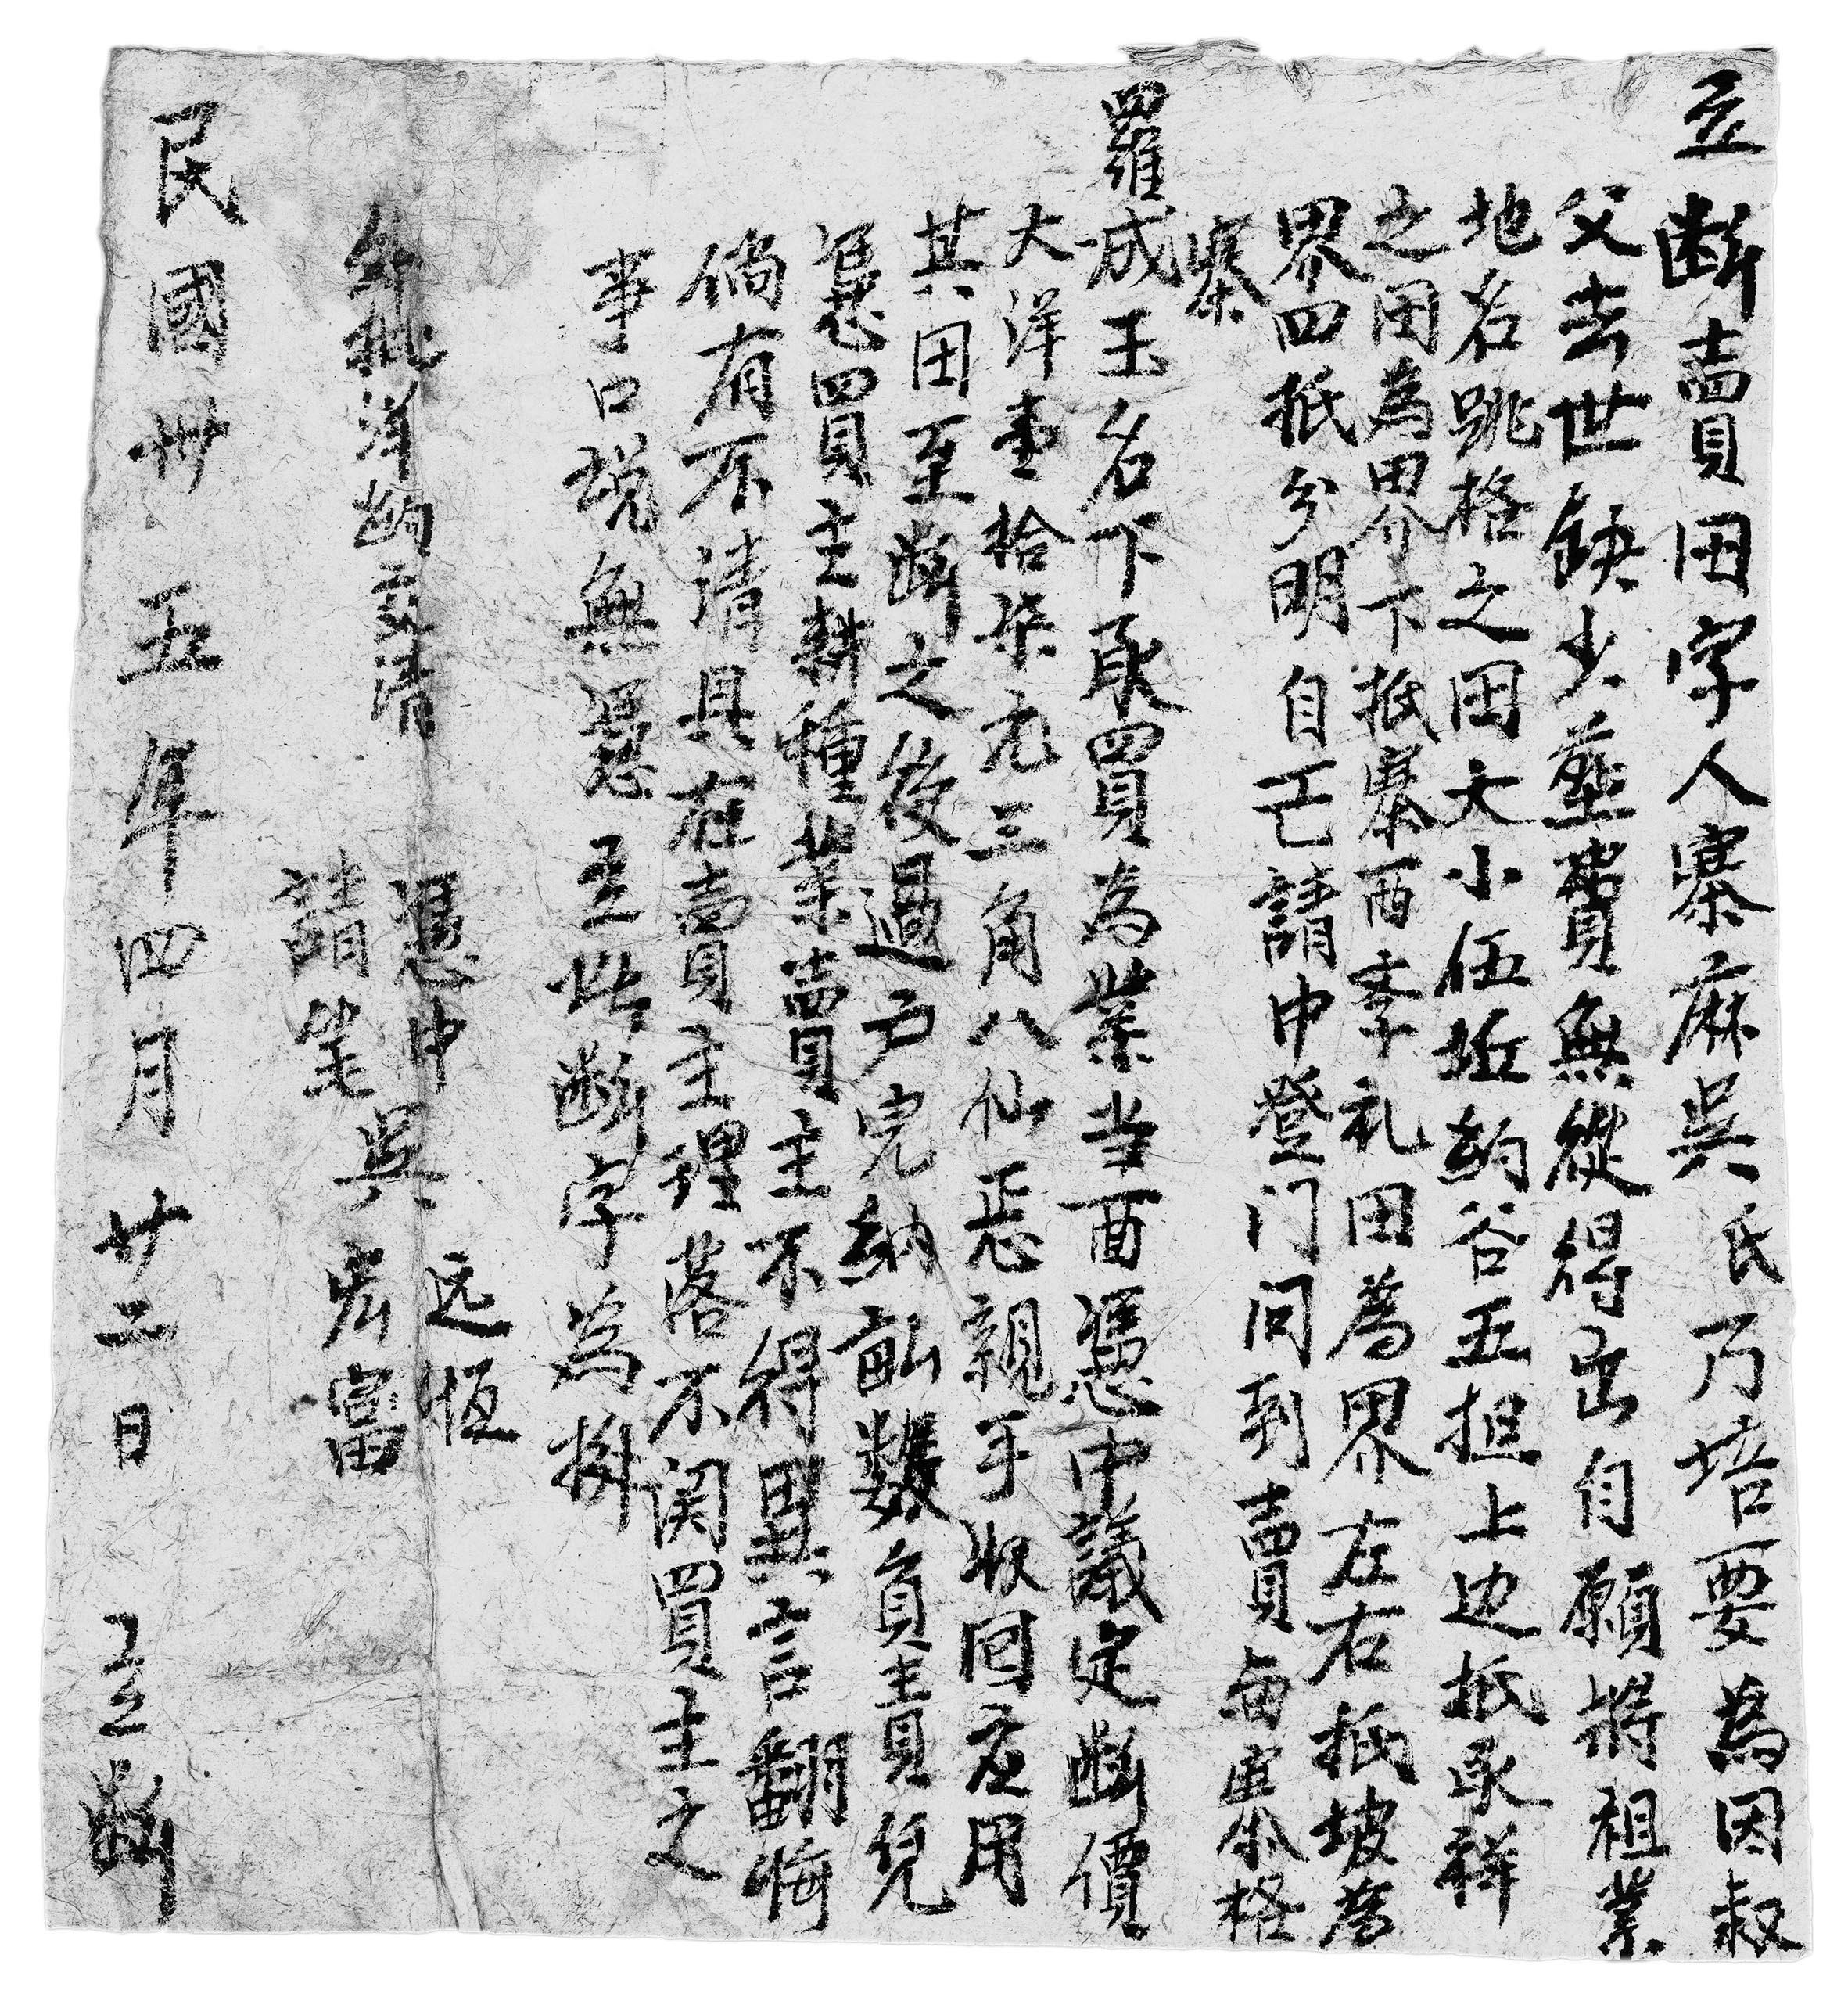 立断賣田字人寨麻吳氏乃培要為因叔
父去世缺少塟費無從得出自願將祖業
地名跳格之田大小伍坵約谷五担上边抵承祥
之田為界下抵寨西季礼田為界左右抵坡為
界四抵分明自己請中登门问到賣与寨格
寨
羅成玉名下承買為業当面憑中議定断價
大洋壹拾柒元三角八仙正親手收回應用
其田至断之後過户完納畝数負責兒
憑買主耕種業賣主不得異言翻悔
倘有不清具在賣主理落不関買主之
事口説無憑立此断字為拠
外批洋約交清
憑中 吳 远恒
請笔 吳 宏富
民國卅五年四月廿二日 立断